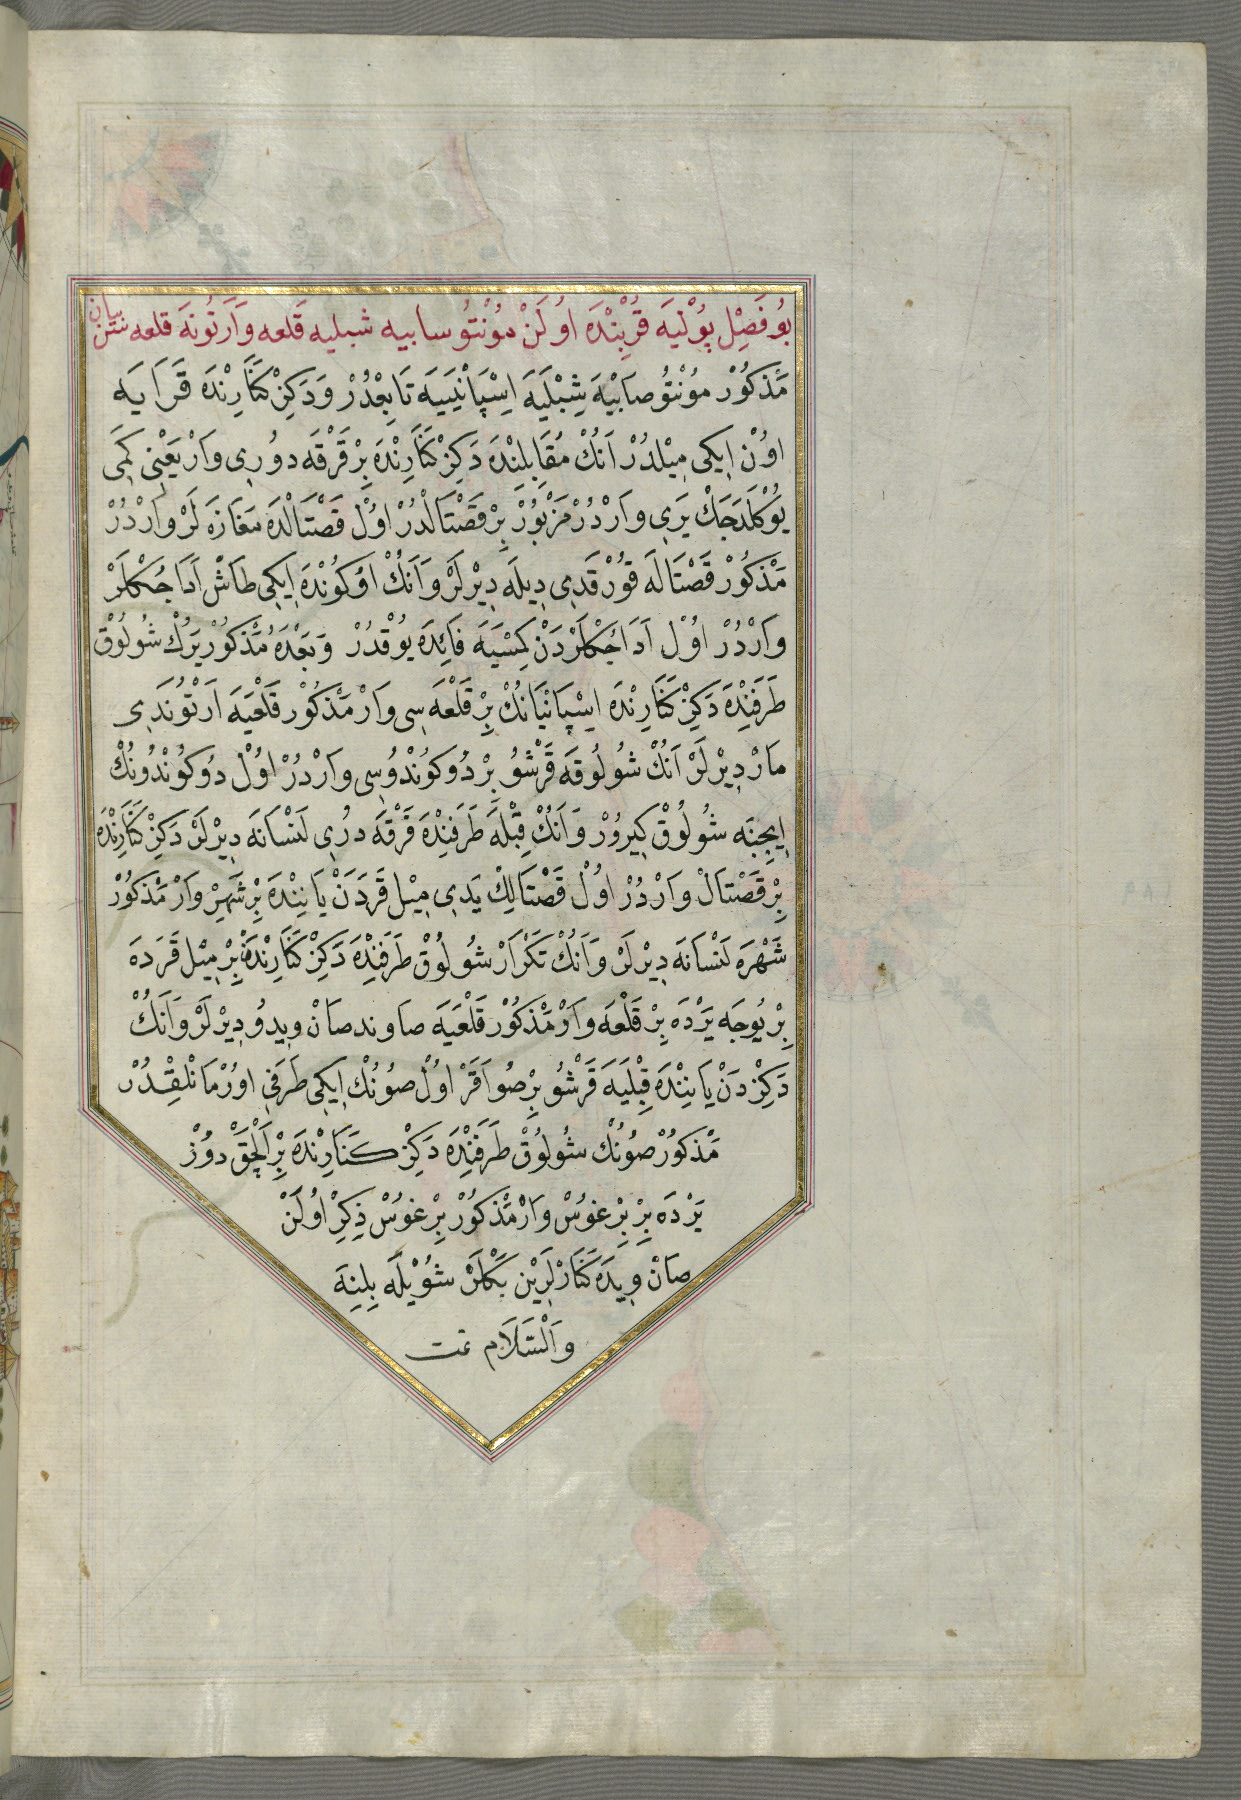 بُو فَصْلْ پُوْلْيَه قُرْبِنْدَه اوُلَنْ مُوْنْتُو سابيه شبليه قَلعه وَارْتُونَه قلعه بيان
مَذْكُوْرْ مُوْنْتُو صَابْيَه شِبْلْيَه اِسْپَانْيَيَه تَابِعْدُرْ وَدَكِزْ كَنَارِنْدَه قَرَايَه
اوُنْ اِيكِي مِيْلدُرْ اَنُكْ مُقَابِلِنْدَه دَكِزْ كَنَارِنْدَه بِرْ قَرْقَه دوُرِي وَارْ يَعْنِي كَمِي
يوُكْلَدَجَكْ يَرِي وَارْدُرْ مَزْبُوْرْ بِرْ قَصْتَالْدُرْ اوُلْ قَصْتَالْدَه مَغَازَه لَرْ وَارْدُرْ
مَذْكُوْرْ قَصْتَالَه قوُرْقَدِي دِيلَه دِيْرلَرْ وَانَكْ اوُكُونْدَه اِيكِي طَاشْ اَدَاجُكْلَرْ
وَارْدُرْ اوُلْ اَدَاجُكْلَرْدَنْ كِمْسَيَه فَائِدَه يوُقْدُرْ وَبَعْدَه مَذْكُوْرْ يَرُكْ شُولُوْقْ
طَرَفِنْدَه دَكِزْ كَنَارِنْدَه اِسْپَانْيَانُكْ بِرْ قَلْعَه سِي وَارْ مَذْكُوْرْ قَلْعَيَه اَرْتُونَه دِي
مَارْ دِيْرلَرْ اَنُكْ شُولُوقَه قَرْشُو بِرْ دُوكُونْدُوسِي وَارْدُرْ اوُلْ دُوكُونْدُونُكْ
اِيچِنَه شُولُوْقْ كِيرُوْرْ وَانَكْ قِبْلَه طَرَفِنْدَه قَرْقَه دُرِي لَنْسَانَه دِيْرلَرْ دَكِزْ كَنَارِنْدَه
بِرْ قَصْتَالْ وَارْدُرْ اوُلْ قَصْتَالِكْ يَدِي مِيْل قَرَدَنْ يَانِنْدَه بِرْ شَهِرْ وَارْ مَذْكُوْرْ
شَهْرَه لَنْسَانَه دِيْرلَرْ وَانَكْ تَكْرَارْ شُولُوْقْ طَرَفِنْدَه دَكِزْ كَنَارِنْدَه بِرْ مِيْل قَرَدَه
بِرْ يُوجَه يَرْدَه بِرْ قَلْعَه وَارْ مَذْكُوْرْ قَلْعَيَه صاوند صَانْ وِيدُو دِيْرلَرْ وَانَكْ
دَكِزْ دَنْ يَانِنْدَه قِبْلَيَه قَرْشُو بِرْ صُو اَقَرْ اوُلْ صُونُكْ اِيكِي طَرَفِي اوُرْمَانْلِقْدُرْ
مَذْكُوْرْ صُونُكْ شُولُوْقْ طَرَفِنْدَه دَكِزْ كَنَارِنْدَه بِرْ اَلْچَقْ دوُزْ
يَرْدَه بِرْ بِرْغوُسْ وَارْ مَذْكُوْرْ بِرْغوُسْ ذِكِرْ اوُلَنْ
صَانْ وِيدَه كَنَارْلَرِيْن بَكْلَرْ شُوْيْلَه بِلِنَه
وَالْسَّلَام تمت